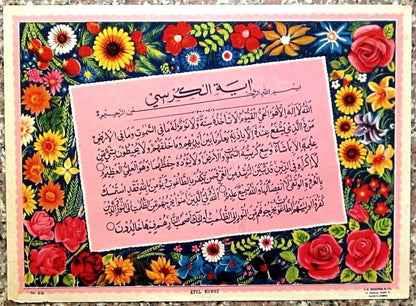 اية الكرسي
بسم الله الرحمن الرحيم
اَللّٰهُ لَا اِلٰهَ اِلَّا هُوَ الْحَيُّ الْقَيُّوْمُ لَا تَأْخُذُهٗ سِنَةٌ وَّلَا نَوْمٌ لَهٗ مَا فِى السَّمٰوٰتِ وَمَا فِى الْاَرْضِ
مَنْ ذَا الَّذِىْ يَشْفَعُ عِنْدَهٗ اِلَّا بِاِذْنِهٖ يَعْلَمُ مَا بَيْنَ اَيْدِيْهِمْ وَمَا خَلْفَهُمْ وَلَا يُحِيْطُوْنَ بِشَىْءٍ مِّنْ
عِلْمِهٖ اِلَّا بِمَا شَآءَ وَسِعَ كُرْسِيُّهُ السَّمٰوٰتِ وَالْاَرْضَ وَلَا يَئُوْدُهٗ حِفْظُهُمَا وَهُوَ الْعَلِىُّ الْعَظِيْمُ
لَا اِكْرَاهَ فِى الدِّيْنِ قَدْ تَّبَيَّنَ الرُّشْدُ مِنَ الْغَىِّ فَمَنْ يَّكْفُرْ بِالطَّاغُوْتِ وَيُؤْمِنْ بِاللّٰهِ فَقَدِ اسْتَمْسَكَ
بِالْعُرْوَةِ الْوُثْقٰى لَا انْفِصَامَ لَهَا وَاللّٰهُ سَمِيْعٌ عَلِيْمٌ اَللّٰهُ وَلِىُّ الَّذِيْنَ اٰمَنُوْا يُخْرِجُهُمْ مِّنَ الظُّلُمٰتِ اِلَى النُّوْرِ وَالَّذِيْنَ
كَفَرُوْا اَوْلِيٰٓئُهُمُ الطَّاغُوْتُ يُخْرِجُوْنَهُمْ مِّنَ النُّوْرِ اِلَى الظُّلُمٰتِ اُولٰٓئِكَ اَصْحٰبُ النَّارِ هُمْ فِيْهَا خٰلِدُوْنَ
No.
AYTUL KURSI